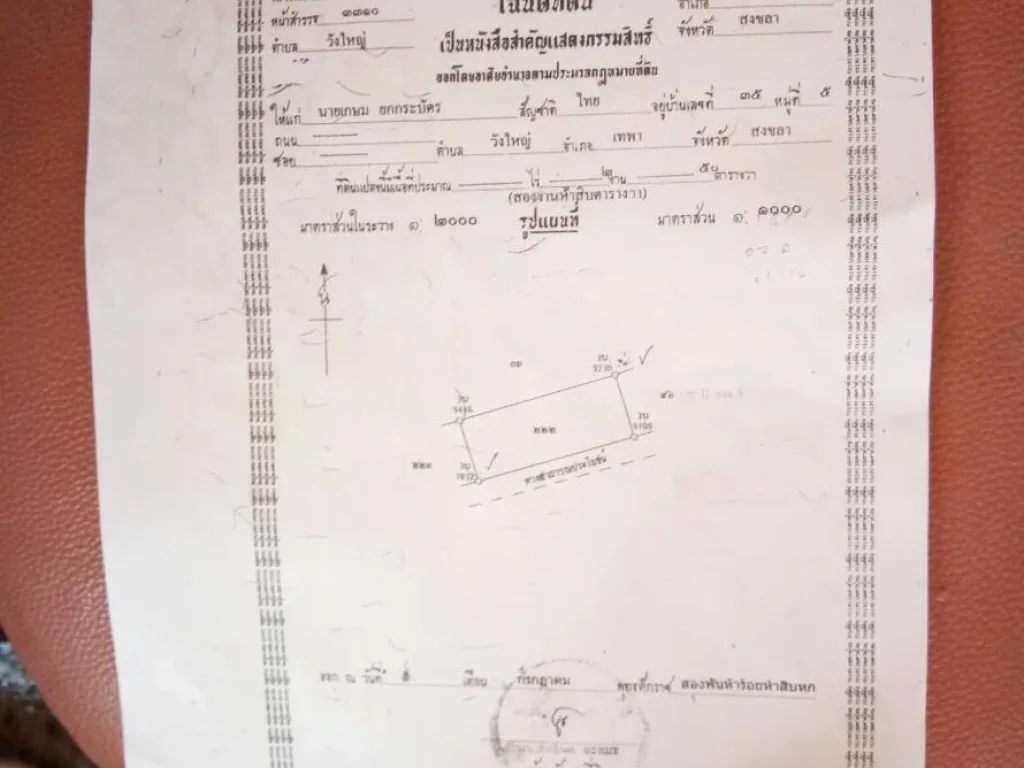 โฉนดที่ดิน
หน้าสำรวจ ๓๓๑๐ อำเภอ
ตำบล วังใหญ่ เป็นหนังสือสำคัญแสดงกรรมสิทธิ์ จังหวัด สงขลา
ออกโดยอาศัยอำนาจตามประมวลกฎหมายที่ดิน
ให้แก่ นายเกษม ยกกระบัตร สัญชาติ ไทย อยู่บ้านเลขที่ ๓๕ หมู่ที่ ๕
ถนน
ซอย ตำบล วังใหญ่ อำเภอ เทพา จังหวัด สงขลา
ที่ดินแปลงนี้มีเนื้อที่ประมาณ ไร่ ๒ งาน ๕๐ ตารางวา
(สองงานห้าสิบตารางวา)
มาตราส่วนในระวาง ๑: ๒๐๐๐ รูปแผนที่ มาตราส่วน ๑: ๑๐๐๐
น
๓๑
๒๒๒
๒๒๑
ทางสาธารณประโยชน์
ออก ณ วันที่ เดือน กรกฎาคม พุทธศักราช สองพันห้าร้อยห้าสิบหก